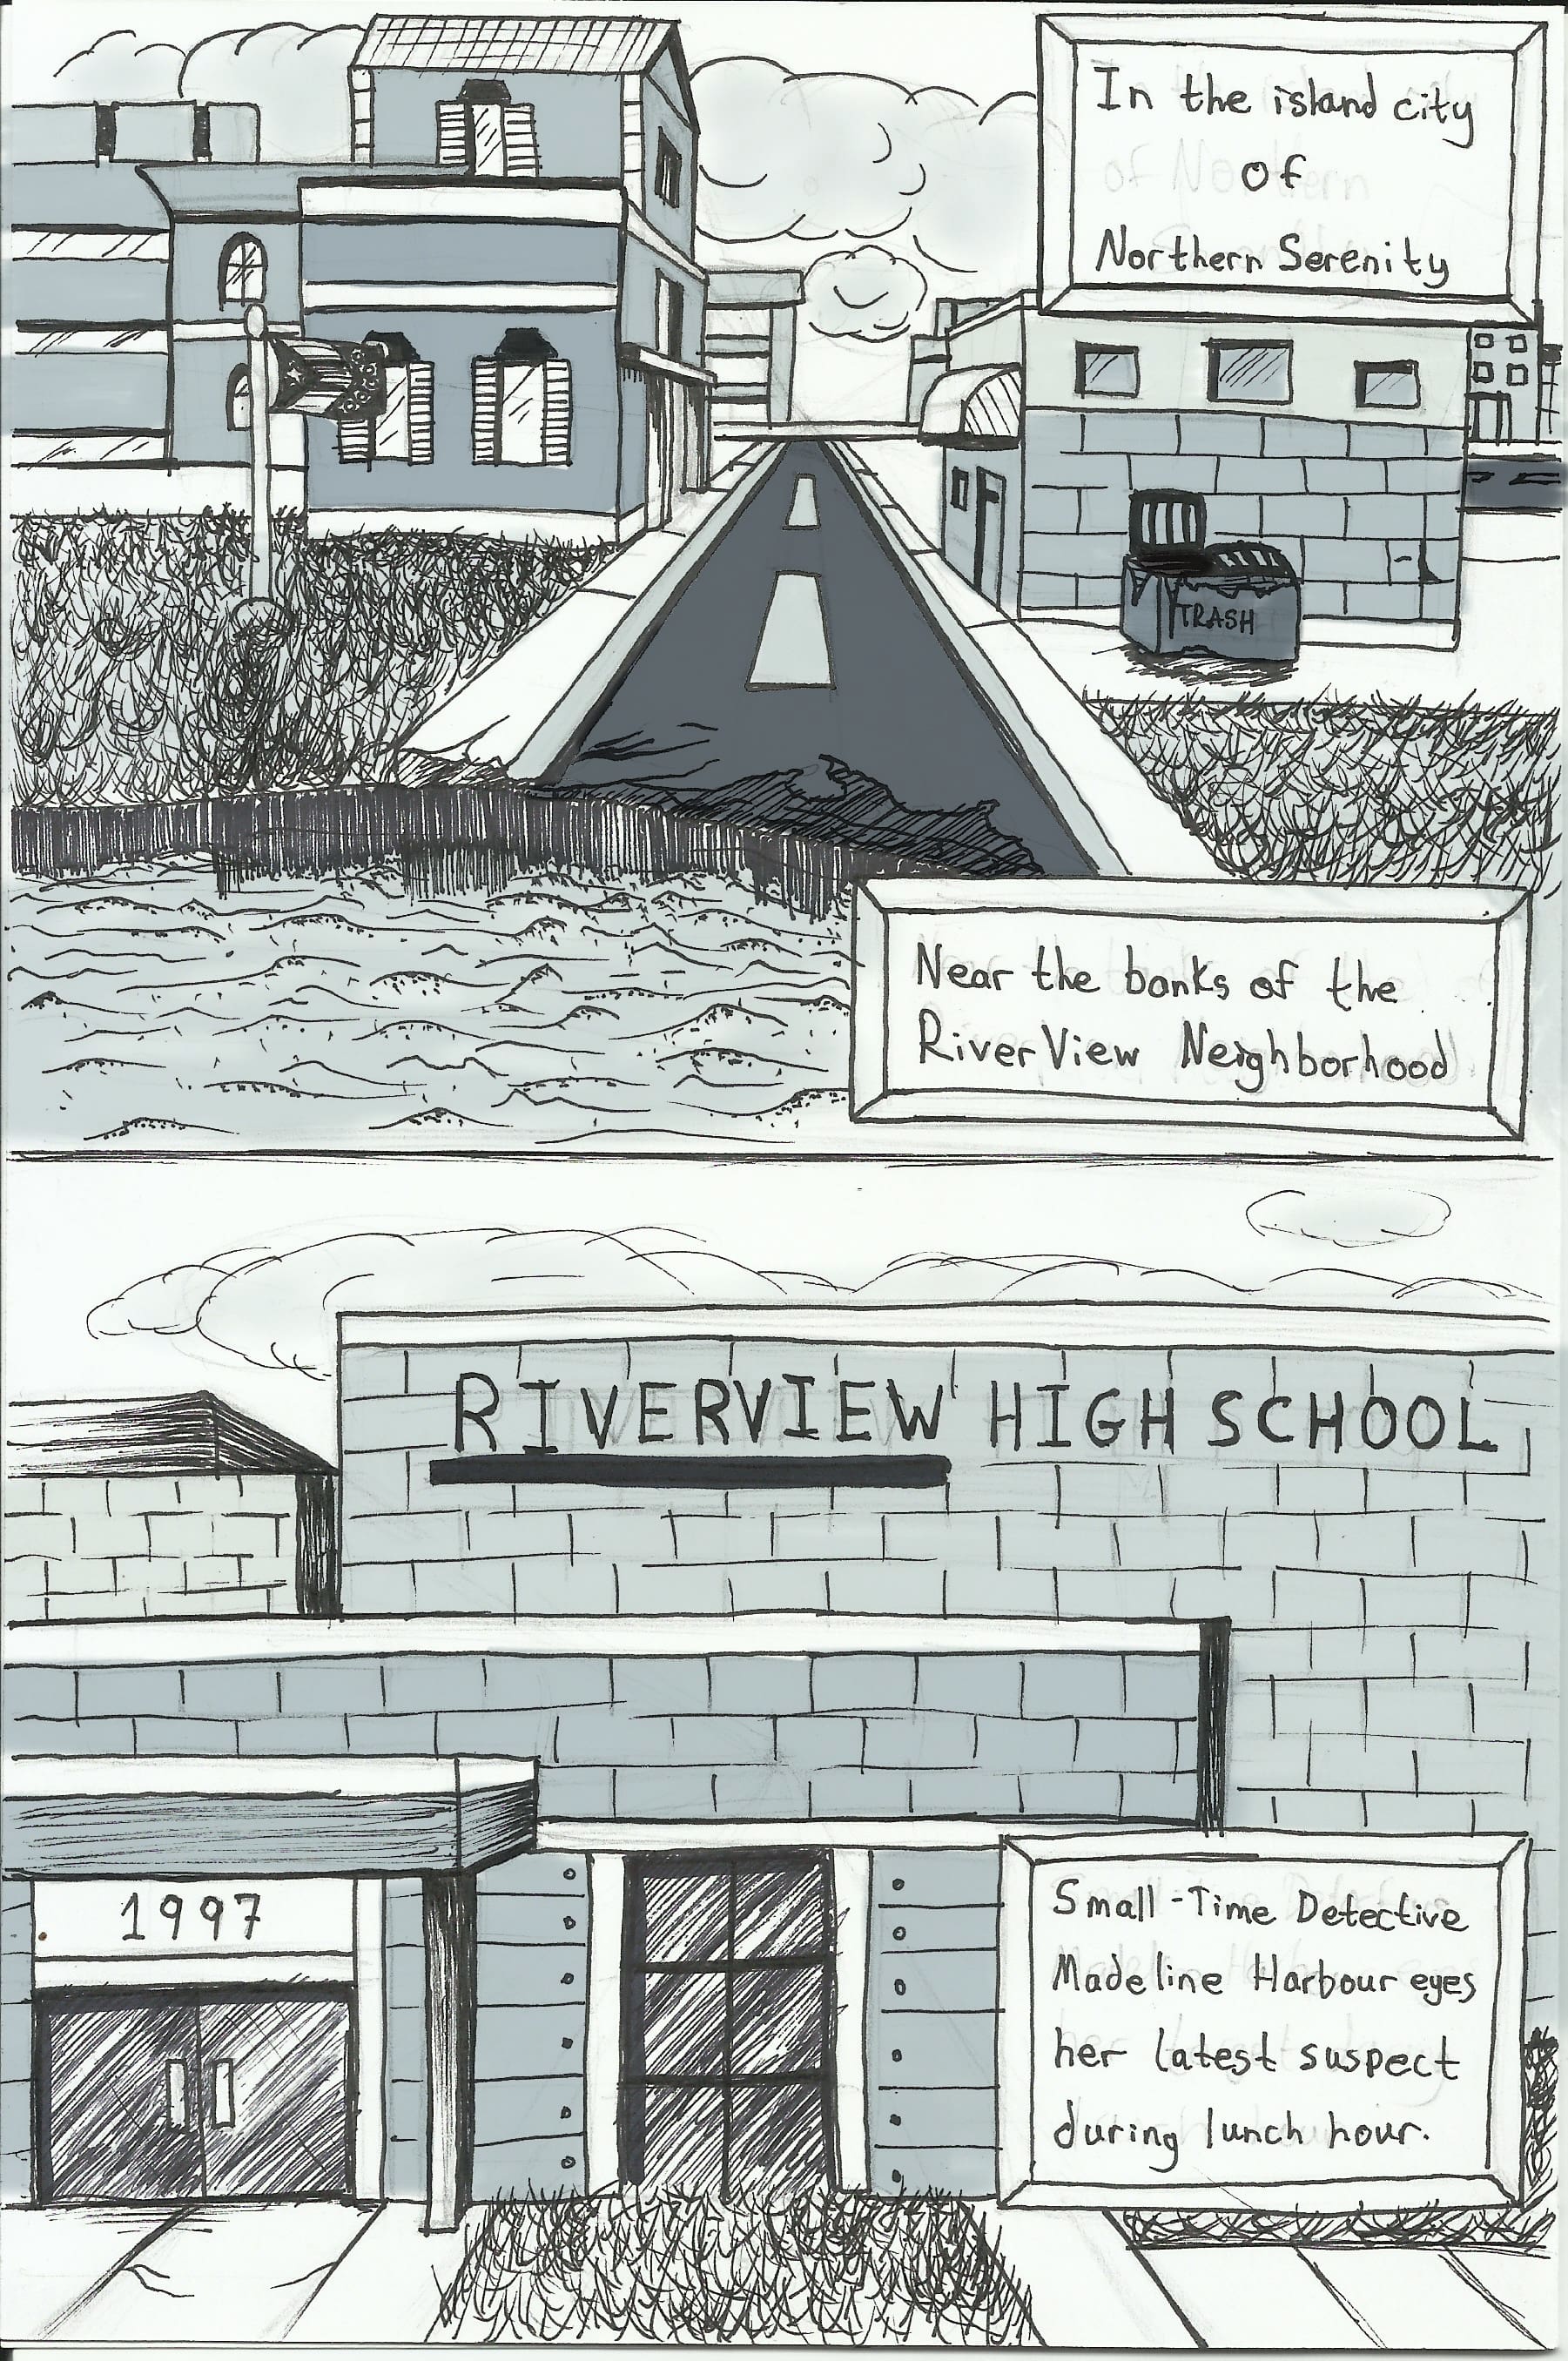 In the island city
of
Northern Serenity
TRASH
Near the banks of the
RiverView Neighborhood
RIVERVIEW HIGH SCHOOL
1997
Small-Time Detective
Madeline Harbour eyes
her latest suspect
during lunch hour.